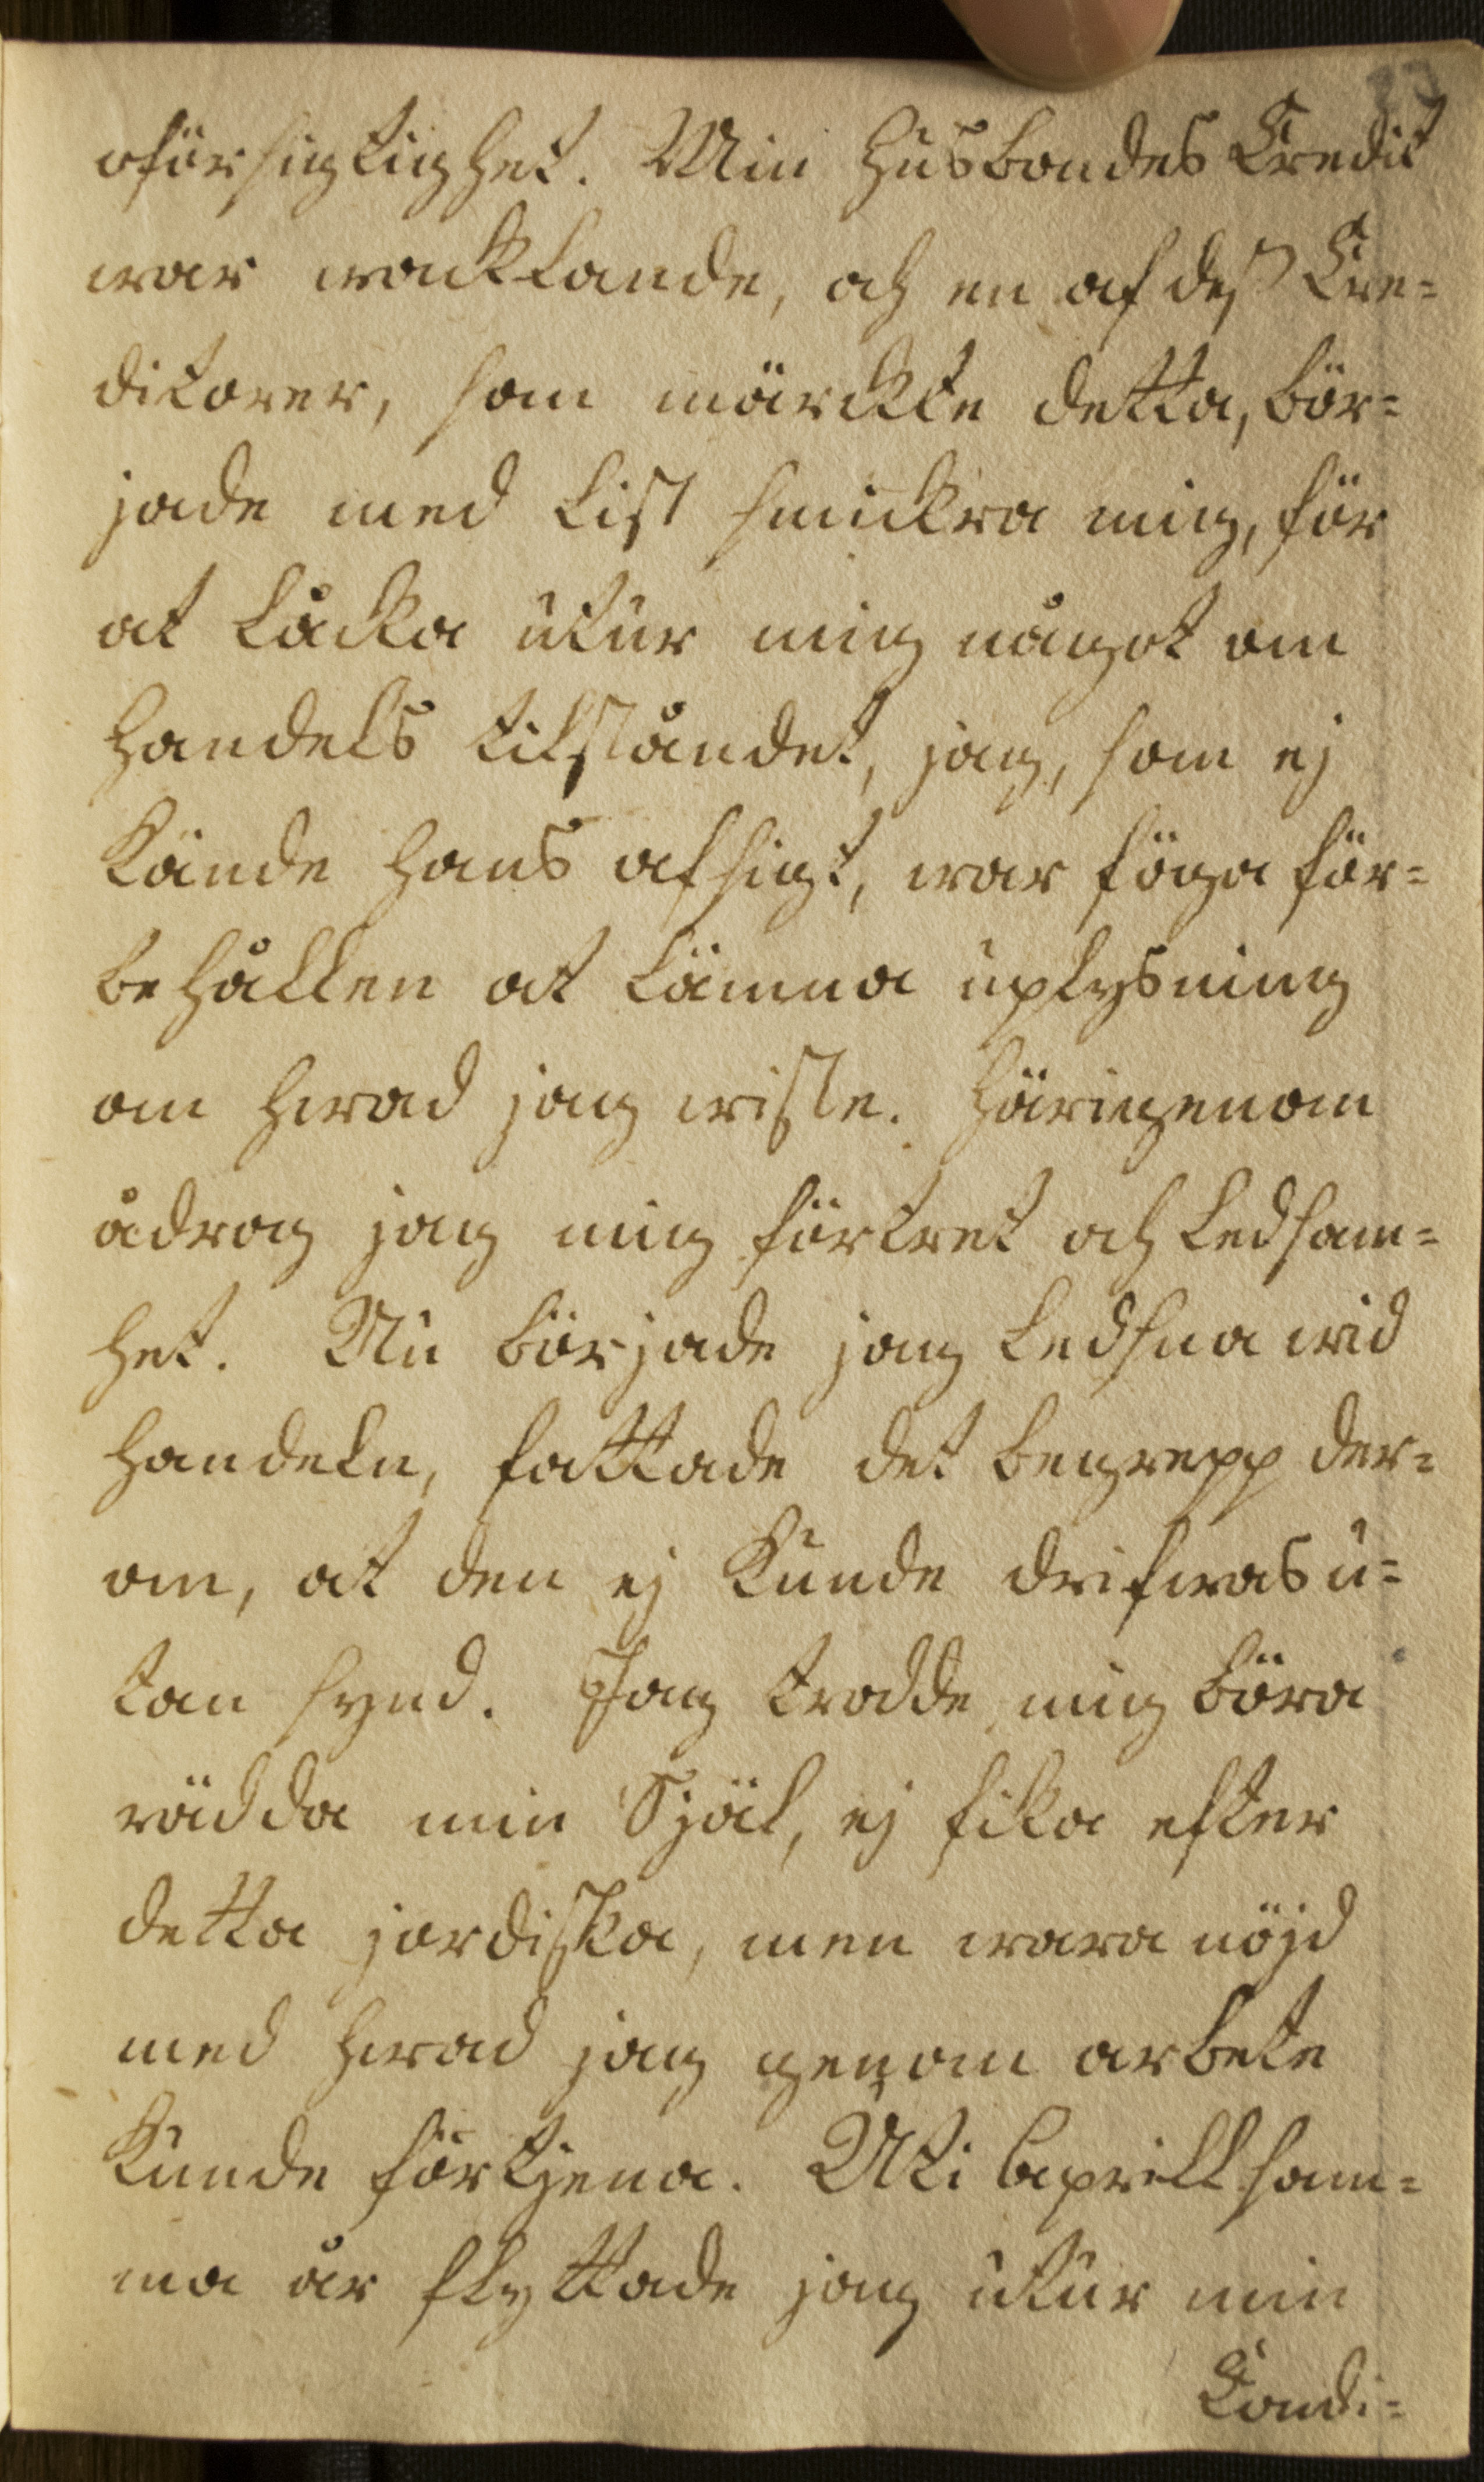 oförsigtighet. Min Husbondes Credit
war wacklande, och en af desz Cre=
ditorer, som märckte detta, bör=
jade med list smickra mig, för
at låcka utur mig något om
Handels tilståndet, jag, som ej
kände hans afsigt, war föga för=
behållen at lämna uplysning
om hwad jag wiste. Härigenom
ådrog jag mig förtret och ledsam=
het. Nu började jag ledsna wid
handeln, fattade det begrepp der=
om, at den ej kunde drifwas u=
tan synd. Jag trodde mig böra
rädda min Själ, ej fika efter
detta jordiska, men wara nöjd
med hwad jag genom arbete
kunde förtjena. Uti Aprill sam=
ma år flyttade jag utur min
Condi=